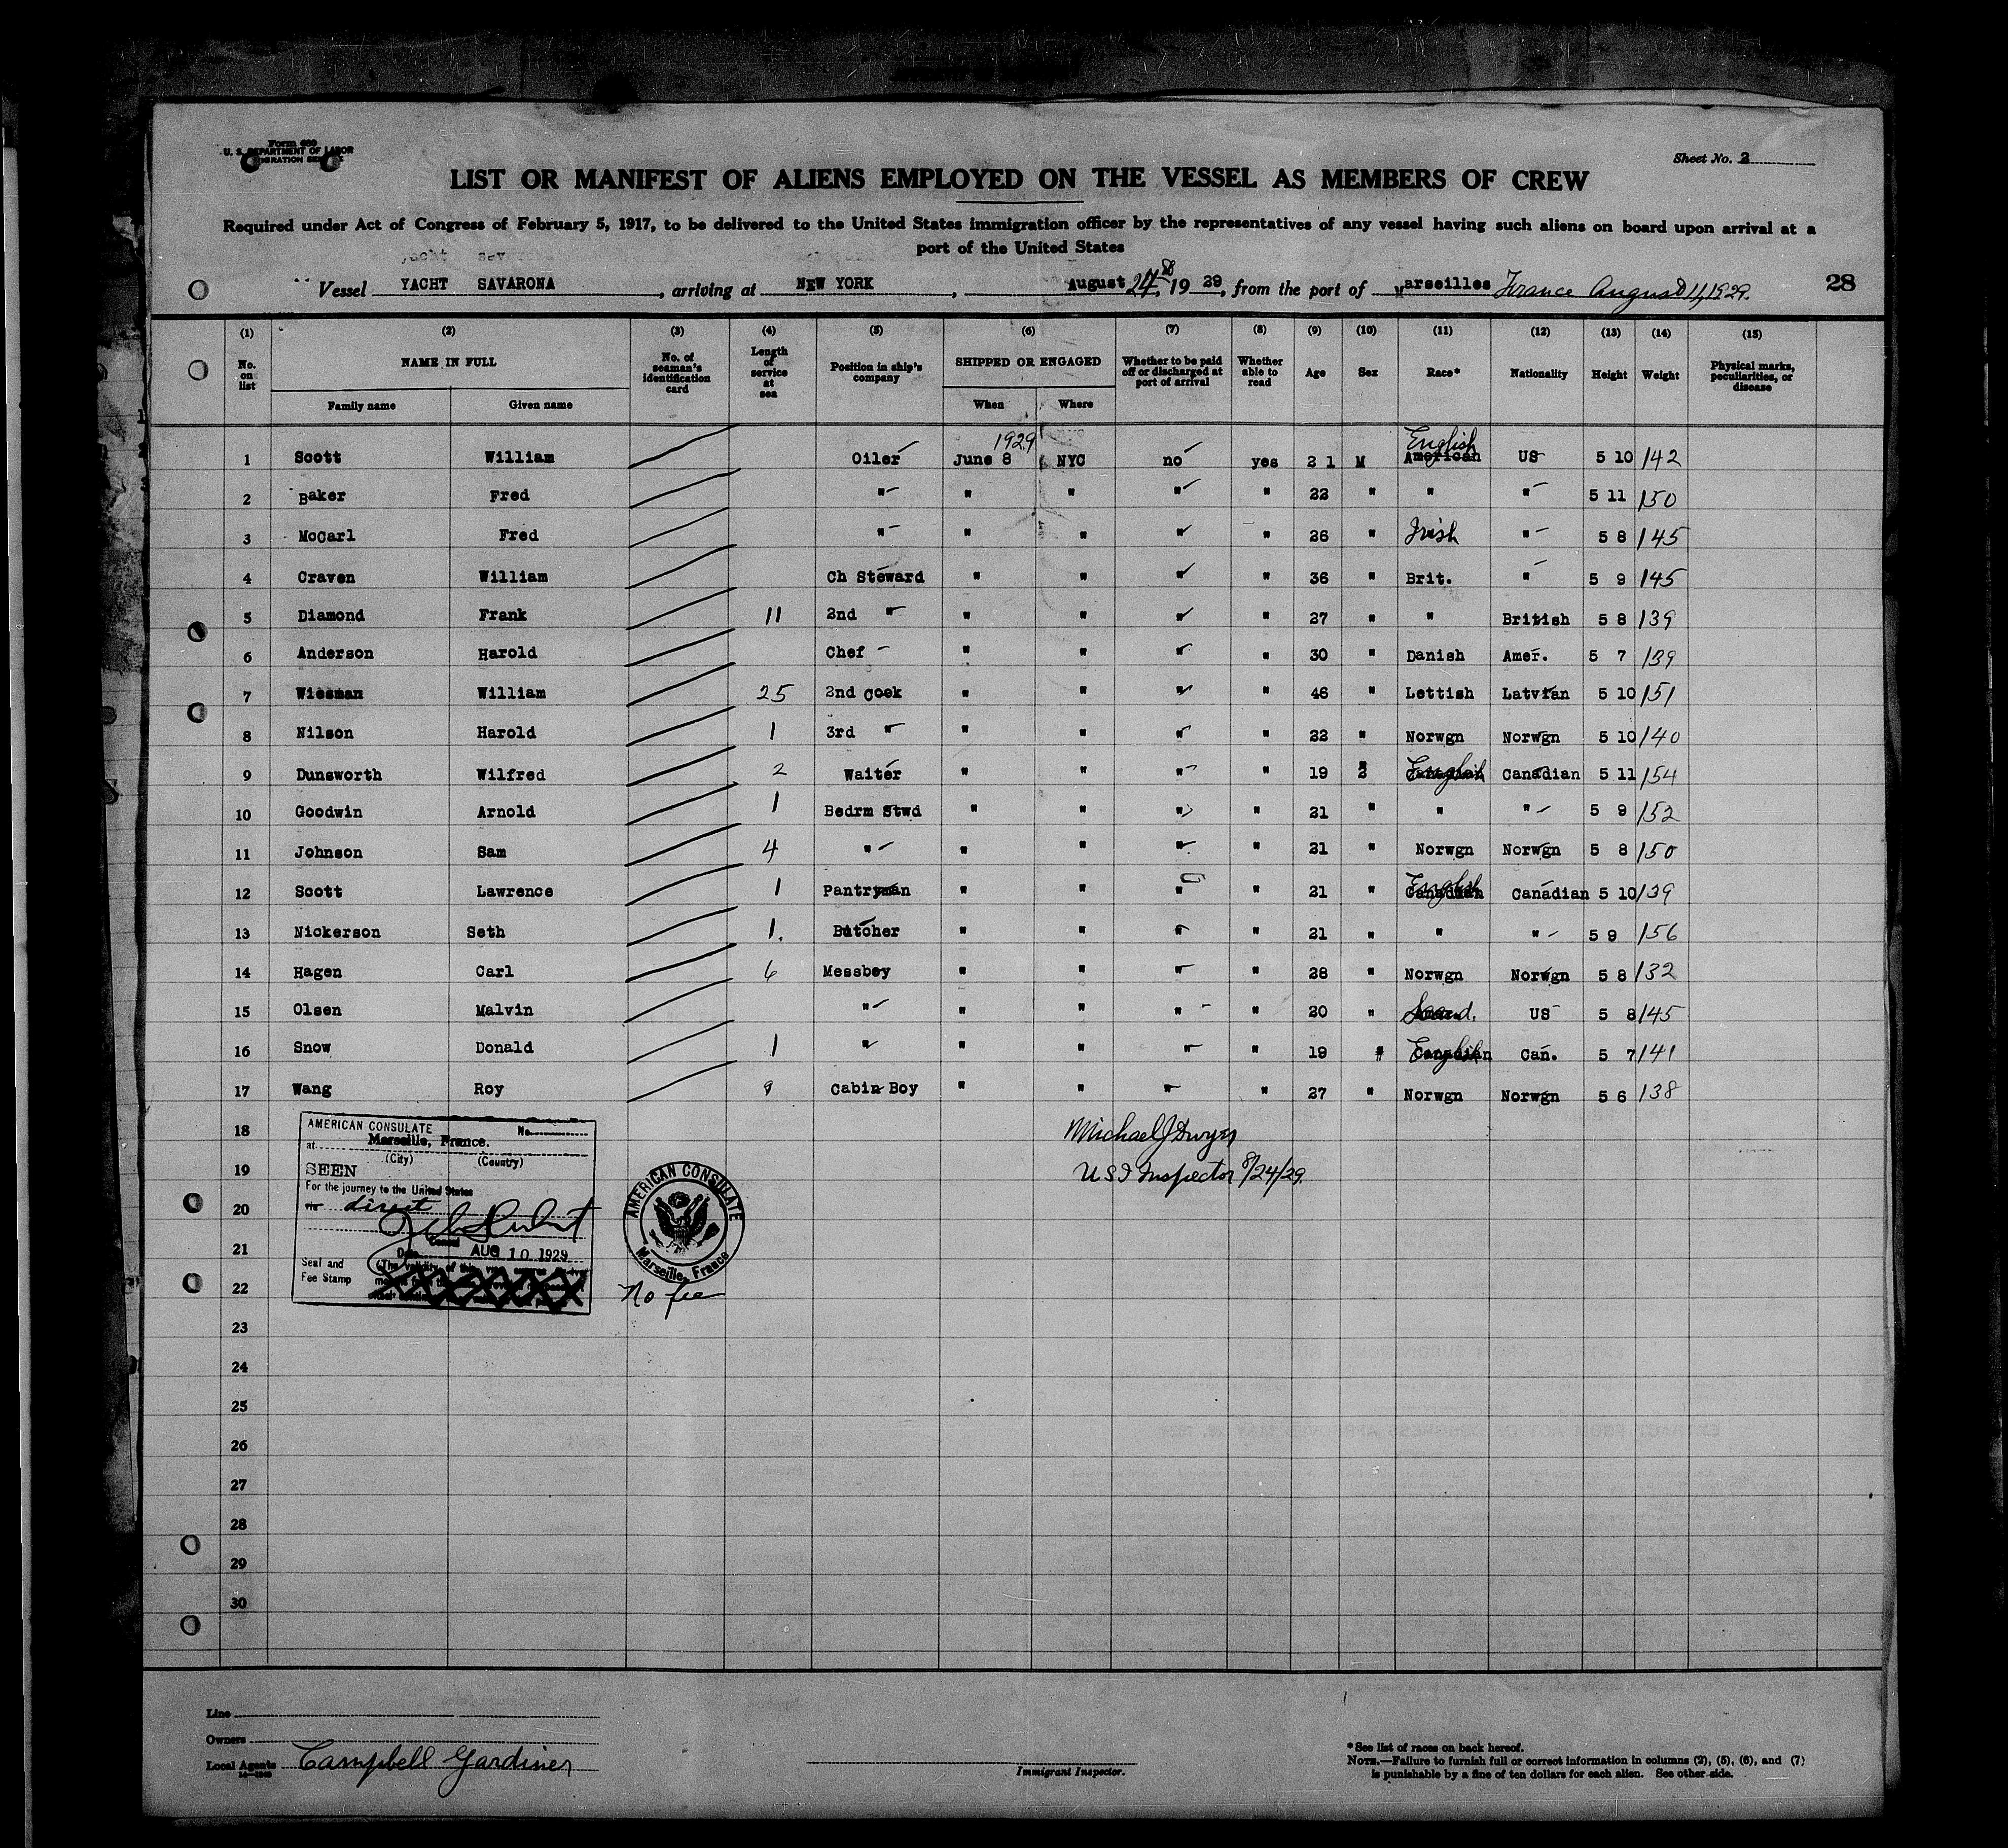 Form 689
U. S. DEPARTMENT OF LABOR
IMMIGRATION SERVICE
Sheet No. 2
LIST OR MANIFEST OF ALIENS EMPLOYED ON THE VESSEL AS MEMBERS OF CREW
Required under Act of Congress of February 5, 1917, to be delivered to the United States immigration officer by the representatives of any vessel having such aliens on board upon arrival at a
port of the United States
Vessel YACHT SAVARONA, arriving at NEW YORK, August 24th, 1929, from the port of Marseilles France August 11, 1929. 28
(1) (2) (3) (4) (5) (6) (7) (8) (9) (10) (11) (12) (13) (14) (15)
No. on list NAME IN FULL No. of seaman's identification card Length of service at sea Position in ship's company SHIPPED OR ENGAGED Whether to be paid off or discharged at port of arrival Whether able to read Age Sex Race* Nationality Height Weight Physical marks, peculiarities, or disease
Family name Given name When Where
1 Scott William Oiler 1929 June 8 NYC no yes 21 M English American US 5 10 142
2 Baker Fred " " " " " 22 " " " 5 11 150
3 McCarl Fred " " " " " 26 " Irish " 5 8 145
4 Craven William Ch Steward " " " " 36 " Brit. " 5 9 145
5 Diamond Frank 11 2nd " " " " " 27 " " British 5 8 139
6 Anderson Harold Chef " " " " 30 " Danish Amer. 5 7 139
7 Wiesman William 25 2nd Cook " " " " 46 " Lettish Latvian 5 10 151
8 Nilson Harold 1 3rd " " " " " 22 " Norwgn Norwgn 5 10 140
9 Dunsworth Wilfred 2 Waiter " " " " 19 " English Canadian 5 11 154
10 Goodwin Arnold 1 Bedrm Stwd " " " " 21 " " " 5 9 152
11 Johnson Sam 4 " " " " " 21 " Norwgn Norwgn 5 8 150
12 Scott Lawrence 1 Pantryman " " " " 21 " English Canadian Canadian 5 10 139
13 Nickerson Seth 1. Butcher " " " " 21 " " " 5 9 156
14 Hagen Carl 6 Messboy " " " " 28 " Norwgn Norwgn 5 8 132
15 Olsen Malvin " " " " " 20 " Scand. US 5 8 145
16 Snow Donald 1 " " " " " 19 " English Canadian Can. 5 7 141
17 Wang Roy 9 Cabin Boy " " " " 27 " Norwgn Norwgn 5 6 138
18 Michael J Dwyer
19 U S I Inspector 8/24/29.
20
21
22
23
24
25
26
27
28
29
30
AMERICAN CONSULATE No.
at Marseille, France.
(City) (Country)
SEEN
For the journey to the United States
via direct
Consul
Date AUG 10 1929
Seal and
Fee Stamp
AMERICAN CONSULATE
Marseille, France
No fee
Line
Owners
Local Agents Campbell Gardiner
Immigrant Inspector.
*See list of races on back hereof.
NOTE.—Failure to furnish full or correct information in columns (2), (5), (6), and (7)
is punishable by a fine of ten dollars for each alien. See other side.